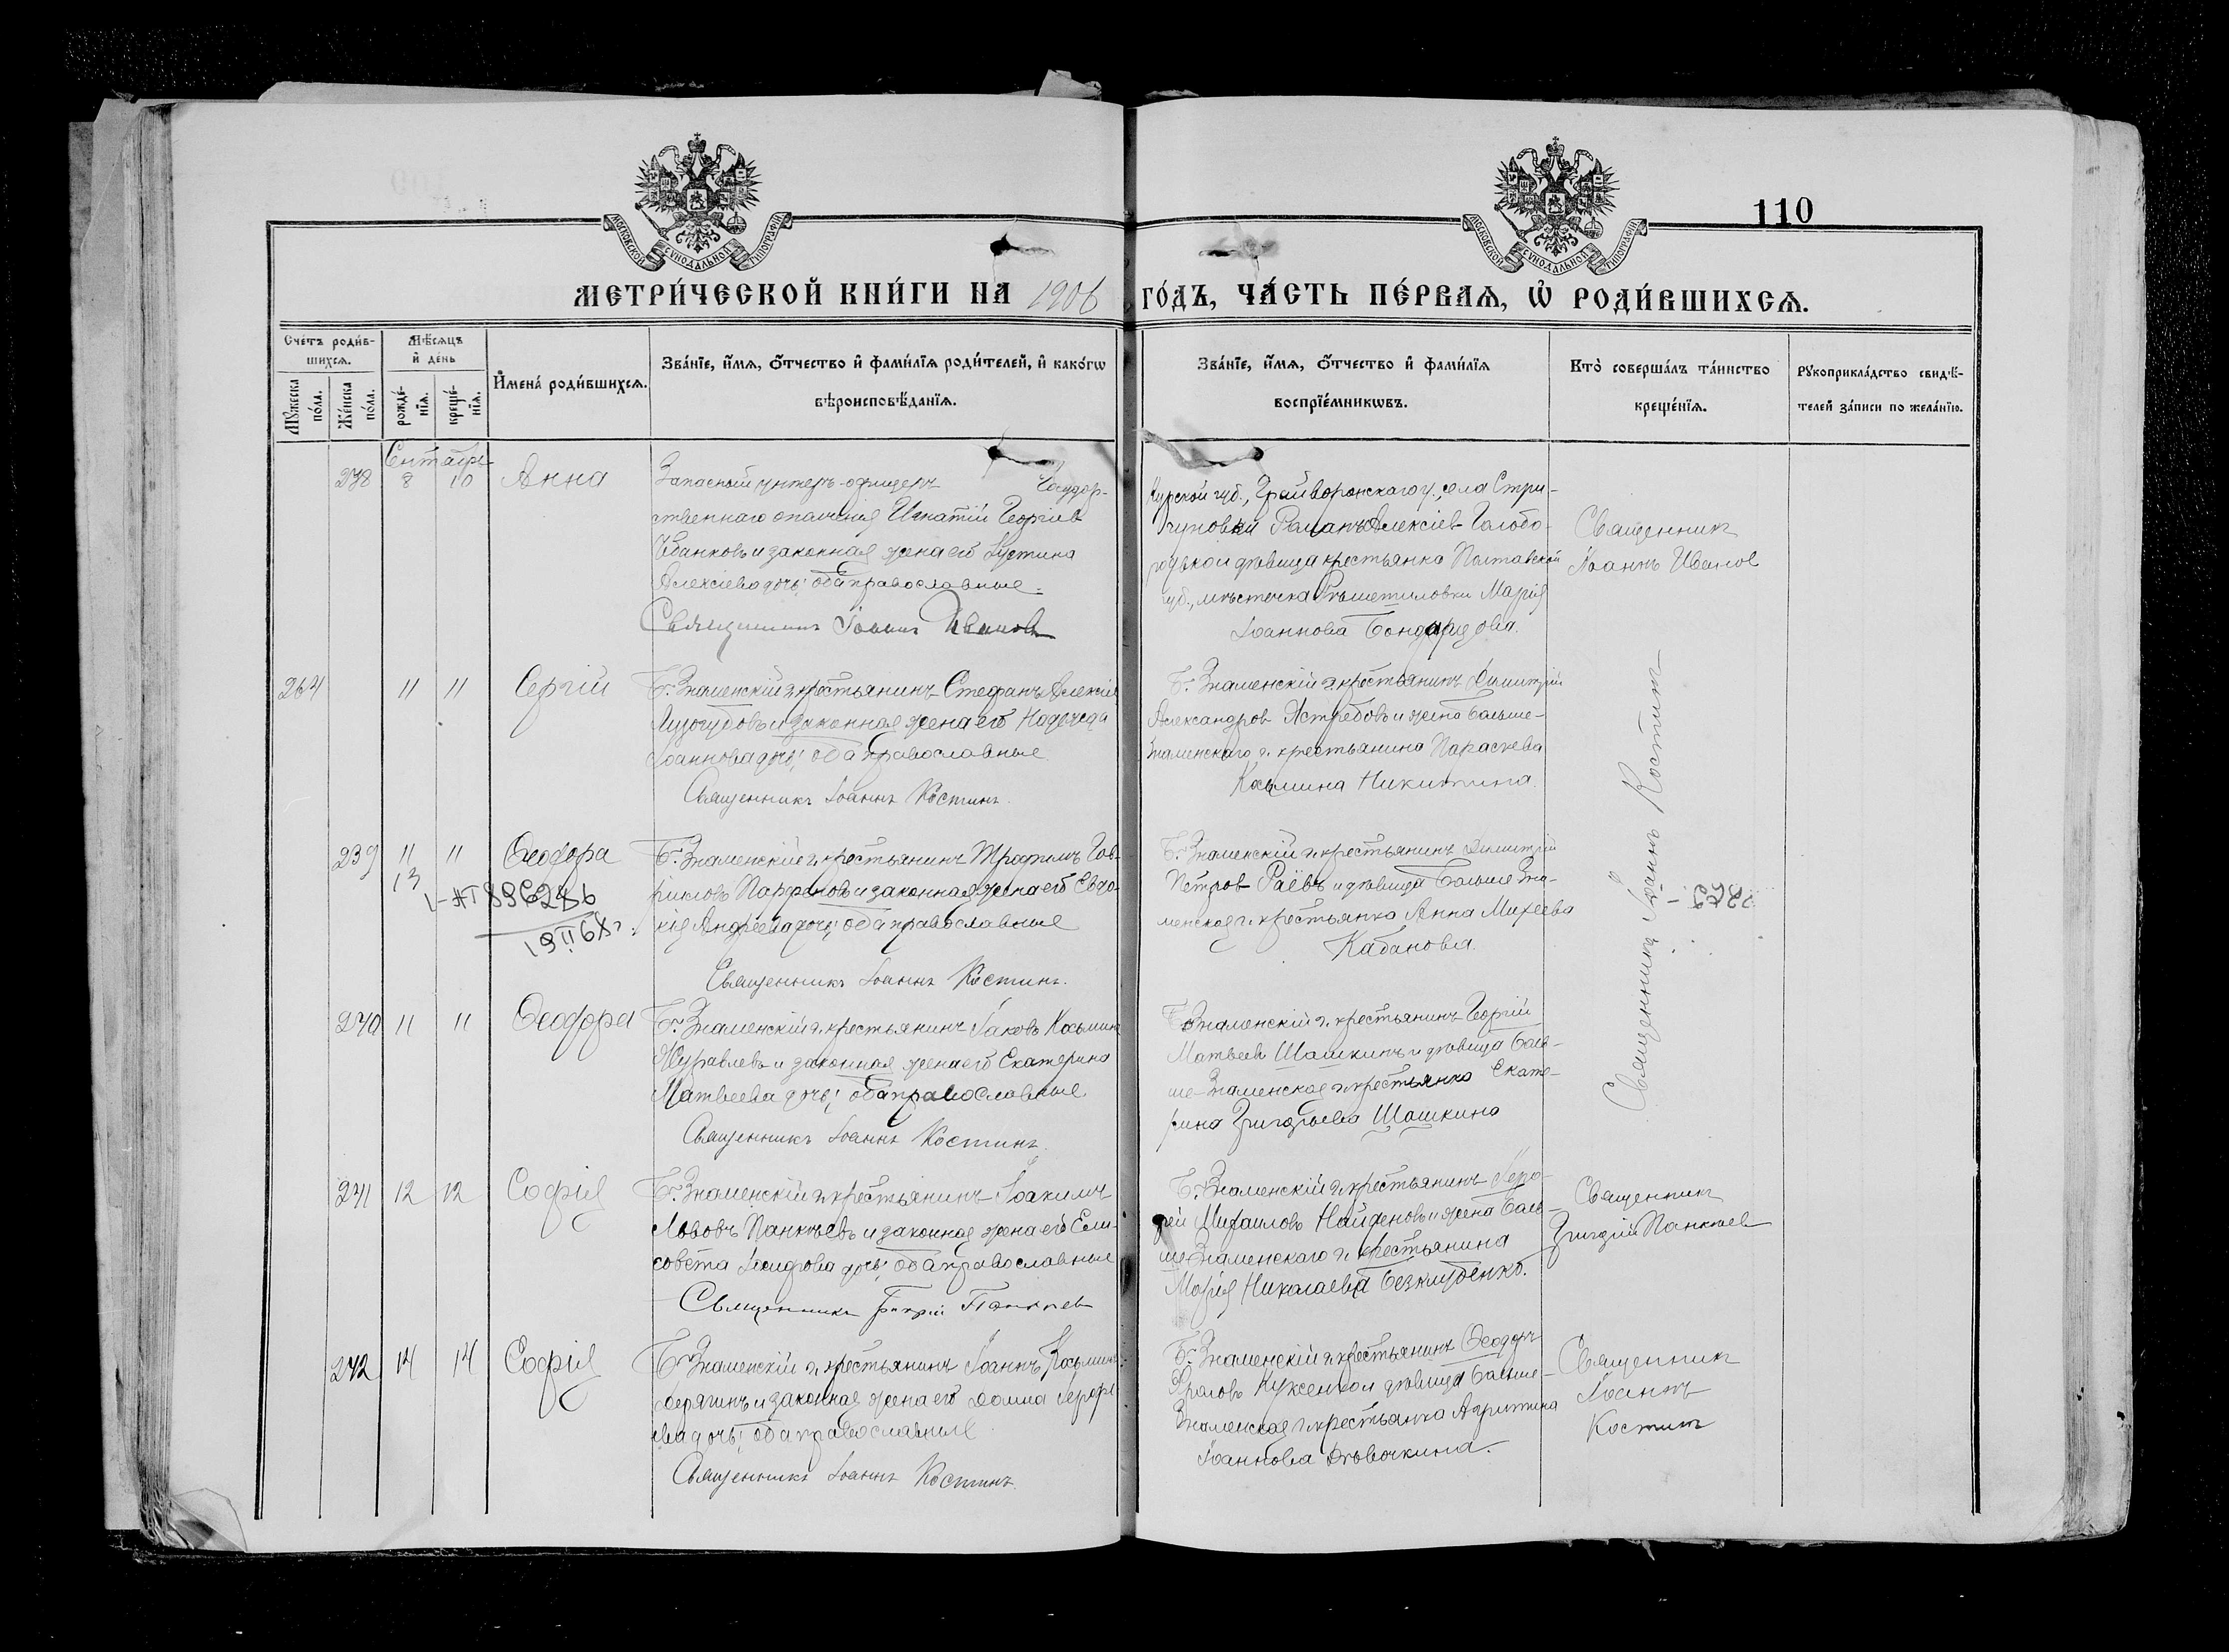 110
МОСКОВСКОЙ СУНОДАЛЬНОЙ ТИПОГРАФІИ
МОСКОВСКОЙ СУНОДАЛЬНОЙ ТИПОГРАФІИ
МЕТРИ́ЧЕСКОЙ КНИ́ГИ НА 1906 ГО́ДЪ, ЧА́СТЬ ПЕ́РВАѦ, Ѡ҆ РОДИ́ВШИХСѦ.
Сче́тъ роди́в-
шихсѧ.
Мꙋ́жеска
по́ла.
Же́нска
по́ла.
Мѣ́сѧцъ
и҆ де́нь
рожде́-
нїѧ.
креще́-
нїѧ.
И҆мена̀ роди́вшихсѧ.
Зва́нїе, и҆́мѧ, ѻ҆́тчество и҆ фами́лїѧ роди́телей, и҆ како́гѡ
вѣроисповѣ́данїѧ.
Зва́нїе, и҆́мѧ, ѻ҆́тчество и҆ фами́лїѧ
воспрїе́мникѡвъ.
Кто̀ соверша́лъ та́инство
креще́нїѧ.
Рꙋкоприкла́дство свидѣ́-
телей за́писи по жела́нїю.
Сентябрь
238 8 10 Анна
Запасный унтеръ-офицеръ Государ-
ственнаго ополченія Игнатій Георгіев
и законная жена его Іустина
Алексіева дочь; оба православные.
Священникъ Іоаннъ Иванов
Курской губ., Грайворонскаго у., села Стри-
гуновки Романъ Алексіев
дѣвица крестьянка Полтавской
губ., мѣстечка Рѣшетиловки Марія
Іоаннова
Священник
Іоаннъ Иванов
264 11 11 Сергій
Б. Знаменскій г. крестьянинъ Стефанъ Алексіев
Лизогубовъ и законная жена его Надежда
Іоаннова дочь; оба православные
Священникъ Іоаннъ Костинъ.
Б. Знаменскій г. крестьянинъ Димитрій
Александров Ястребовъ и жена больше-
знаменскаго г. крестьянина Параскева
Косьмина Никитина.
239 11 11 Ѳеодора
13
Б. Знаменскій г. крестьянинъ Трофимъ Гав-
риловъ Парфеновъ и законная жена его Евдо-
кія Андреева дочь; оба православные
Священникъ Іоаннъ Костинъ.
Б. Знаменскій г. крестьянинъ Димитрій
Петров Раевъ и дѣвица Больше Зна-
менская г. крестьянка Анна Михеева
Кабанова.
240 11 11 Ѳеодора
Б. Знаменскій г. крестьянинъ Іаковъ Косьмин
Журавлевъ и законная жена его Екатерина
Матвеева дочь; оба православные
Священникъ Іоаннъ Костинъ.
Б. Знаменскій г. крестьянинъ Георгій
Матвеев Шашкинъ и дѣвица Боль-
ше-Знаменская г. крестьянка Екате-
рина Григорьева Шашкина
Священникъ Іоаннъ Костин
241 12 12 Софія
Б. Знаменскій г. крестьянинъ Іоакимъ
Львовъ Панкѣевъ и законная жена его Ели-
савета дочь; оба православные
Священникъ Григорій Панкѣев
Б. Знаменскій г. крестьянинъ
Михаиловъ Найденовъ и жена боль-
ше-Знаменскаго г. крестьянина
Марія Николаева Безклубенко.
Священник
Григорій Панкѣев
242 14 14 Софія
Б. Знаменскій г. крестьянинъ Іоаннъ Косьмин
и законная жена его Домна
дочь; оба православные
Священникъ Іоаннъ Костинъ.
Б. Знаменскій г. крестьянинъ Ѳеодоръ
Фролов и дѣвица больше-
Знаменская г. крестьянка
Іоаннова Дѣвочкина.
Священник
Іоаннъ
Костин